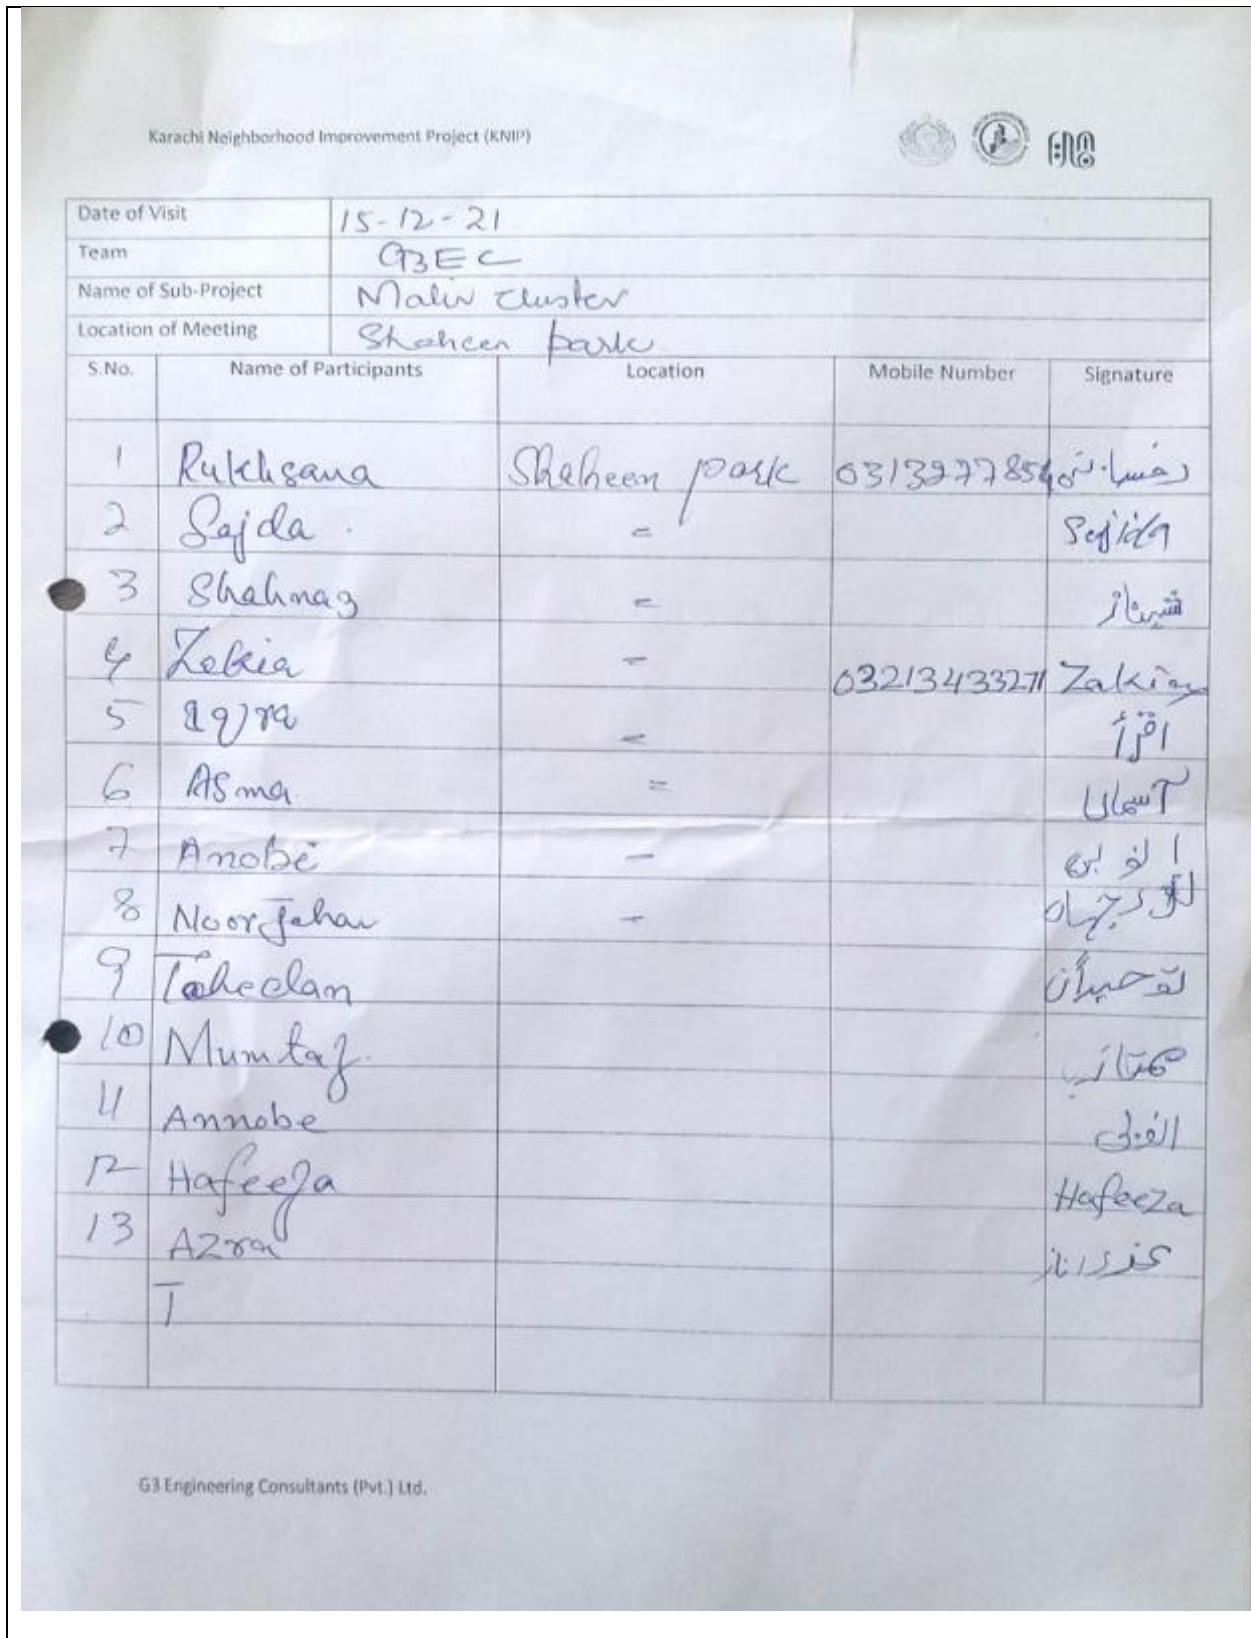 Karachi Neighborhood Improvement Project (KNIP)
Date of Visit 15-12-21
Team G3EC
Name of Sub-Project Malir cluster
Location of Meeting Shaheen park
S.No. Name of Participants Location Mobile Number Signature
1 Rukhsana Shaheen park 03132977854
2 Sajda = Sajida
3 Shahnaz = شہناز
4 Zakia = 03213433271 Zakia
5 Iqra = اقرأ
6 Asma = آسماں
7 Anobe = انو بی
8 Noor Jahan = نور جہاں
9 Taheedan توحیداں
10 Mumtaz ممتاز
11 Annobe
12 Hafeeza Hafeeza
13 Azra
G3 Engineering Consultants (Pvt.) Ltd.